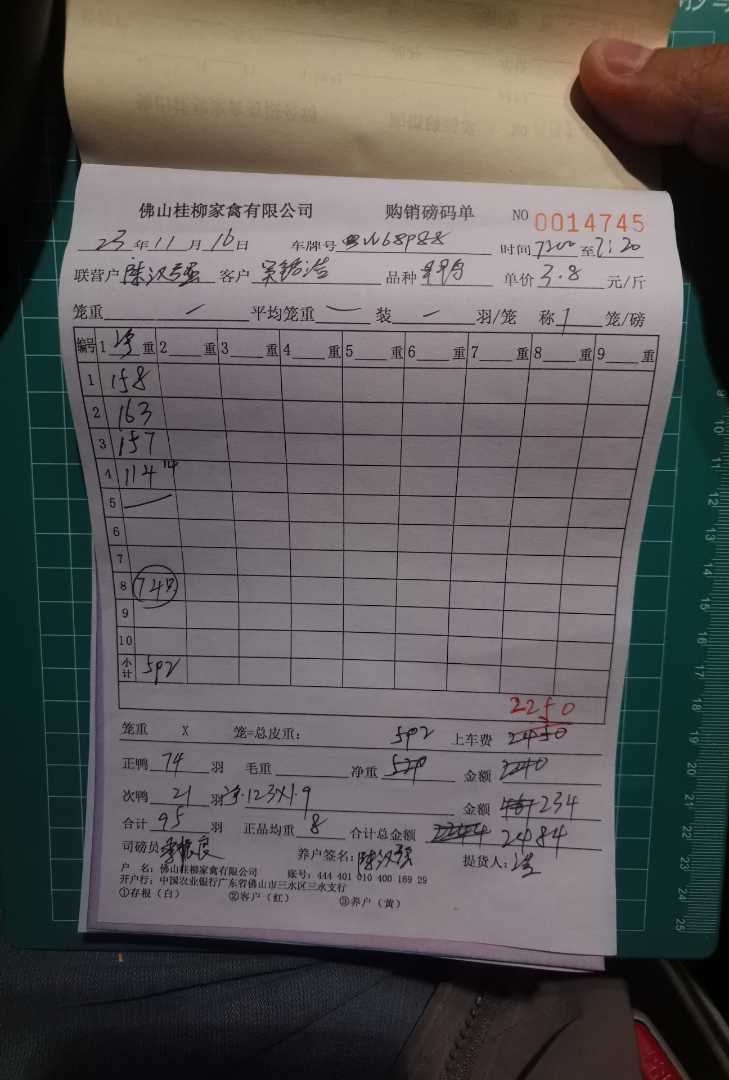 佛山桂柳家禽有限公司 购销磅码单 NO 0014745
23年11月16日 车牌号 68988 时间7:00至7:20
联营户 陈汉强 客户 吴铭浩 品种 单价3.8元/斤
笼重 — 平均笼重 — 装 — 羽/笼 称 1 笼/磅
编号 1 净 重 2 重 3 重 4 重 5 重 6 重 7 重 8 重 9 重
1 158
2 163
3 157
4 114 14
5 —
6
7
8 748
9
10
小计 592
2250
笼重 X 笼=总皮重: 592 上车费 2450
正鸭 74 羽 毛重 净重 520 金额 2240
次鸭 21 羽 净.123X1.9 金额 461 234
合计 95 羽 正品均重 8 合计总金额 2244 2484
司磅员 养户签名: 陈汉强 提货人:
户 名: 佛山桂柳家禽有限公司 账号: 444 401 010 400 169 29
开户行: 中国农业银行广东省佛山市三水区三水支行
①存根（白） ②客户（红） ③养户（黄）
9
10
11
12
13
14
15
16
17
18
19
20
21
22
23
24
25